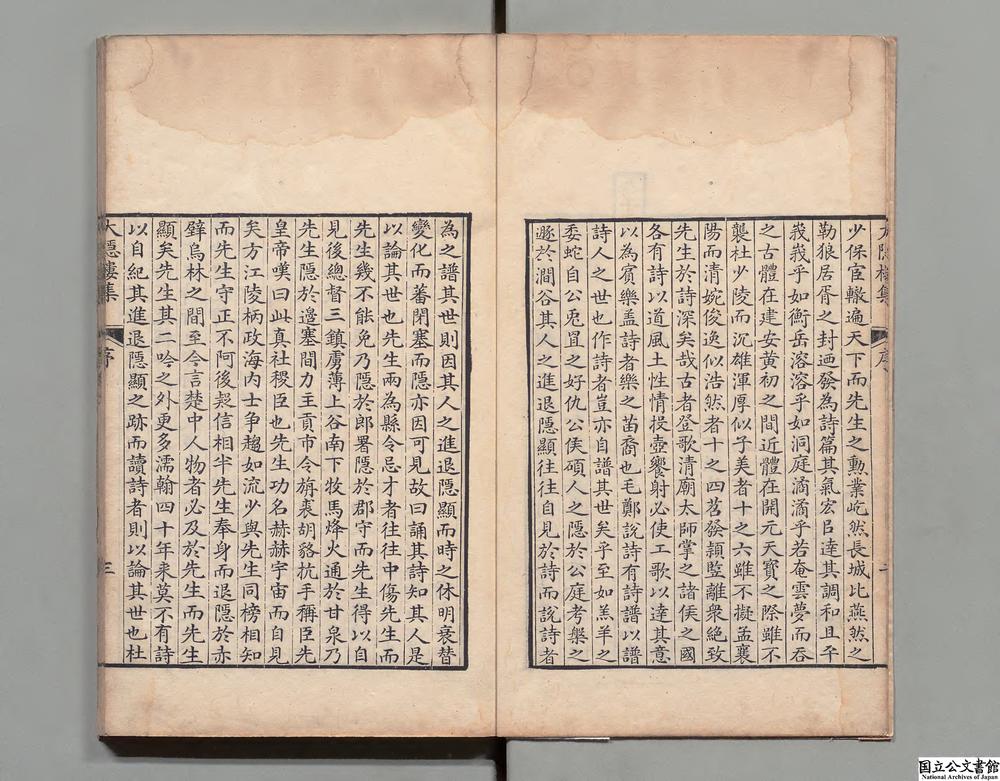 少保宦轍遍天下而先生之勳業屹然長城比燕然之
勒狼居胥之封迺發為詩篇其氣宏臣達其調和且平
峩峩乎如衡岳溶溶乎如洞庭滀滀乎若奄雲夢而吞
之古體在建安黄初之間近體在開元天寶之際雖不
襲杜少陵而沉雄渾厚似子美者十之六雖不擬孟襄
陽而清婉俊逸似浩然者十之四苕發頴竪離衆絶致
先生於詩深矣哉古者登歌清廟太師掌之諸侯之國
各有詩以道風土性情投壺饗射必使工歌以達其意
以為賓樂盖詩者樂之苗裔也毛鄭説詩有詩譜以譜
詩人之世也作詩者豈亦自譜其世矣乎至如羔羊之
委蛇自公兎罝之好仇公侯碩人之隱於公庭考槃之
遯於澗谷其人之進退隱顯往往自見於詩而説詩者
大隱樓集
序
二
為之譜其世則因其人之進退隱顯而時之休明衰替
變化而蕃閉塞而隱亦因可見故曰誦其詩知其人是
以論其世也先生兩為縣令忌才者往往中傷先生而
先生幾不能免乃隱於郎署隱於郡守而先生得以自
見後總督三鎮虜薄上谷南下牧馬烽火通於甘泉乃
先生隱於邉塞間力主貢市令旃裘胡貉抗手稱臣先
皇帝嘆曰此真社稷臣也先生功名赫赫宇宙而自見
矣方江陵柄政海内士争趨如流少與先生同榜相知
而先生守正不阿後疑信相半先生奉身而退隱於赤
壁烏林之間至今言楚中人物者必及於先生而先生
顯矣先生其二吟之外更多濡翰四十年来莫不有詩
以自紀其進退隱顯之跡而讀詩者則以論其世也杜
大隱樓集
序
三
国立公文書館
National Archives of Japan